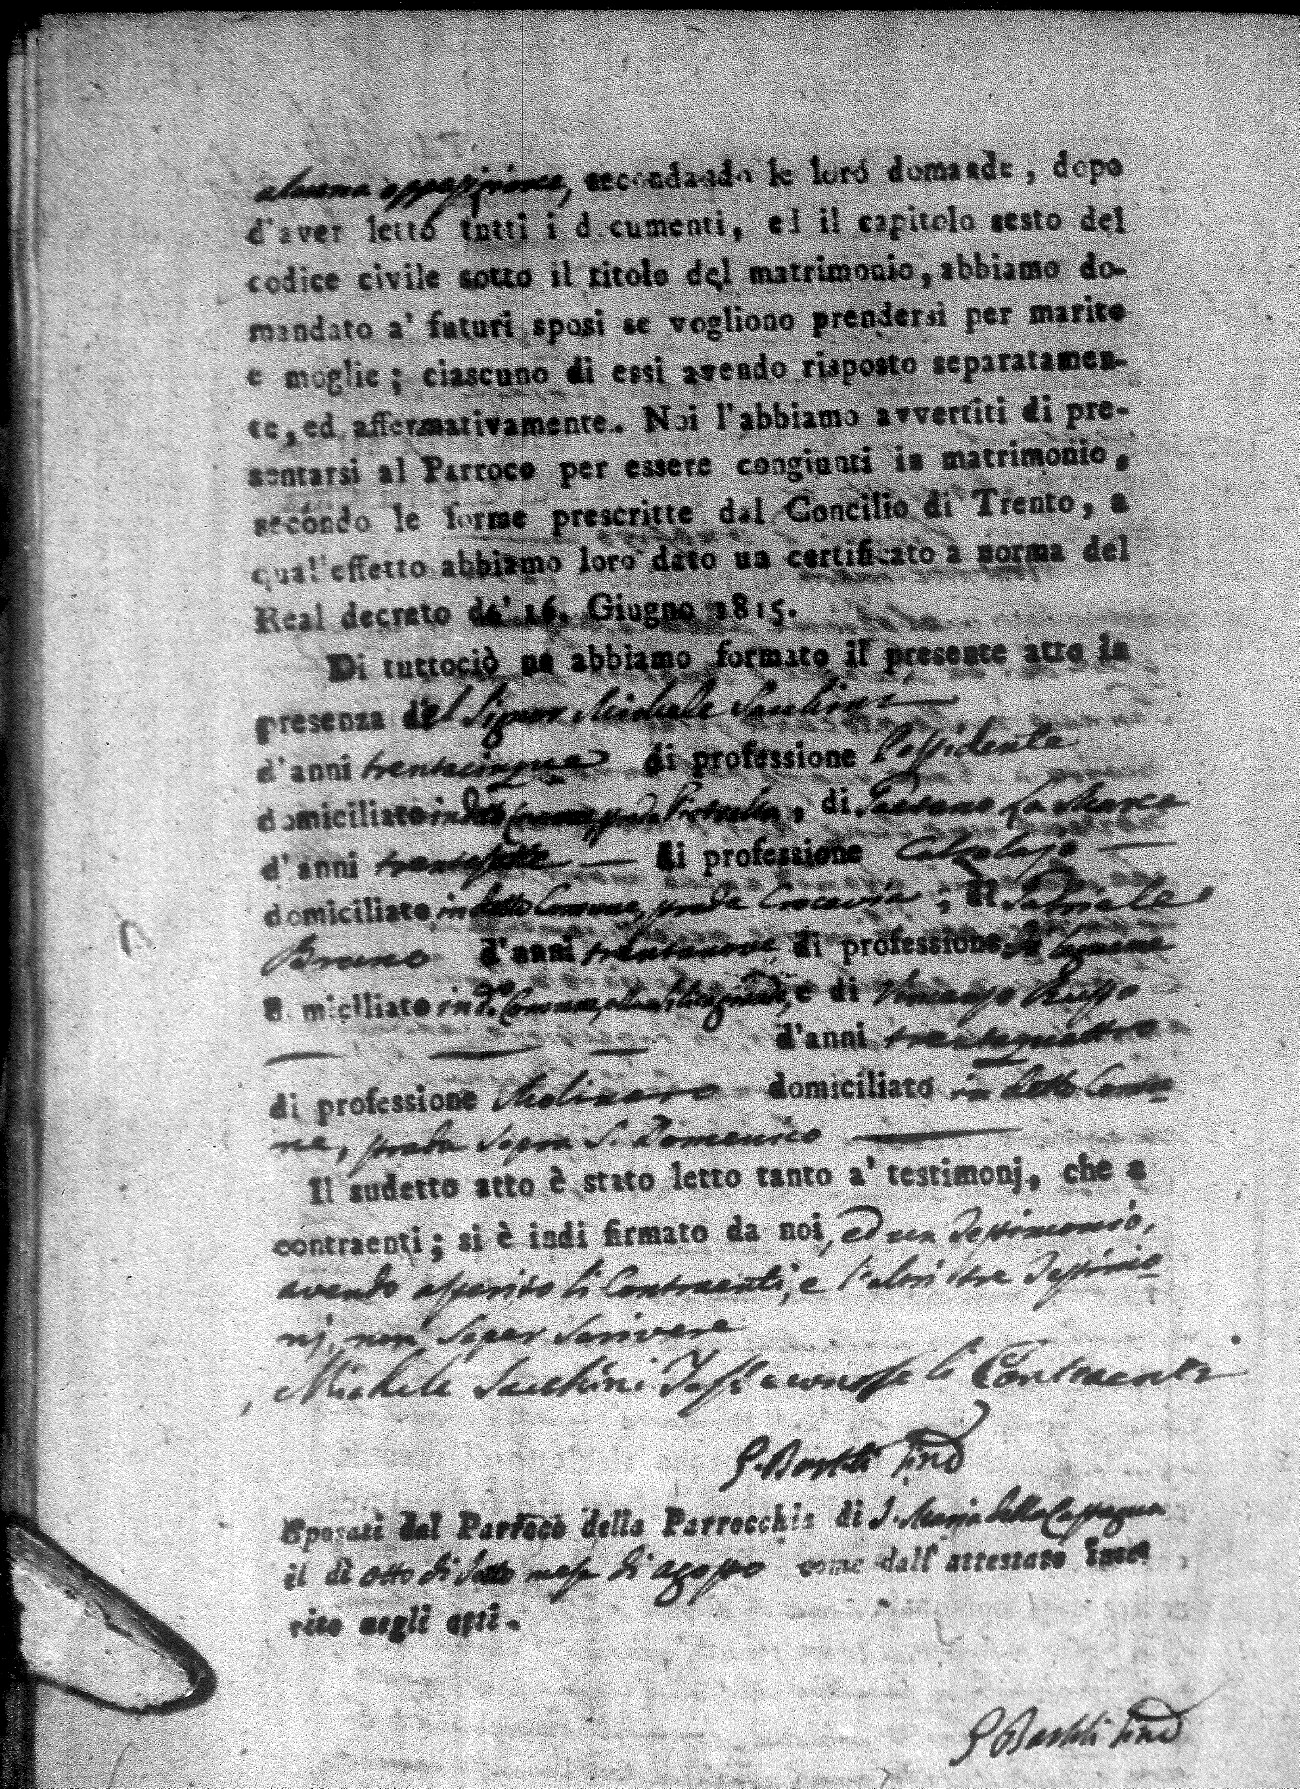 alcuna opposizione, secondando le loro domande, dopo
d'aver letto tutti i d cumenti, ed il capitolo sesto del
codice civile sotto il titolo del matrimonio, abbiamo do-
mandato a' futuri sposi se vogliono prendersi per marito
e moglie; ciascuno di essi avendo risposto separatamen-
te, ed affermativamente. Noi l'abbiamo avvertiti di pre-
sentarsi al Parroco per essere congiunti in matrimonio,
secondo le forme prescritte dal Concilio di Trento, a
qual'effetto abbiamo loro dato un certificato a norma del
Real decreto de' 16. Giugno 1815.
Di tuttociò ne abbiamo formato il presente atto in
presenza del Signor Michele Sacchini
d'anni trentacinque di professione Possidente
domiciliato in d.to Comune, di Gaetano La Marca
d'anni trentasette di professione Calzolajo
domiciliato in detto Comune, strada Crocevia; di Gabriele
Bruno d'anni trentanove di professione
miciliato in d.to Comune, e di Vincenzo Russo
d'anni trentaquattro
di professione Molinaro domiciliato in detto Comu-
ne, strada sopra S. Domenico
Il sudetto atto è stato letto tanto a' testimonj, che a
contraenti; si è indi firmato da noi, ed un Testimonio,
avendo asserito li Contraenti, e l'altri tre Testimo-
nj, non saper scrivere
Michele Sacchini Test. e conosce li Contraenti
Sposati dal Parroco della Parrocchia di S. Maria della
il dì otto di detto mese di agosto come dall' attestato inse
rito negli atti.